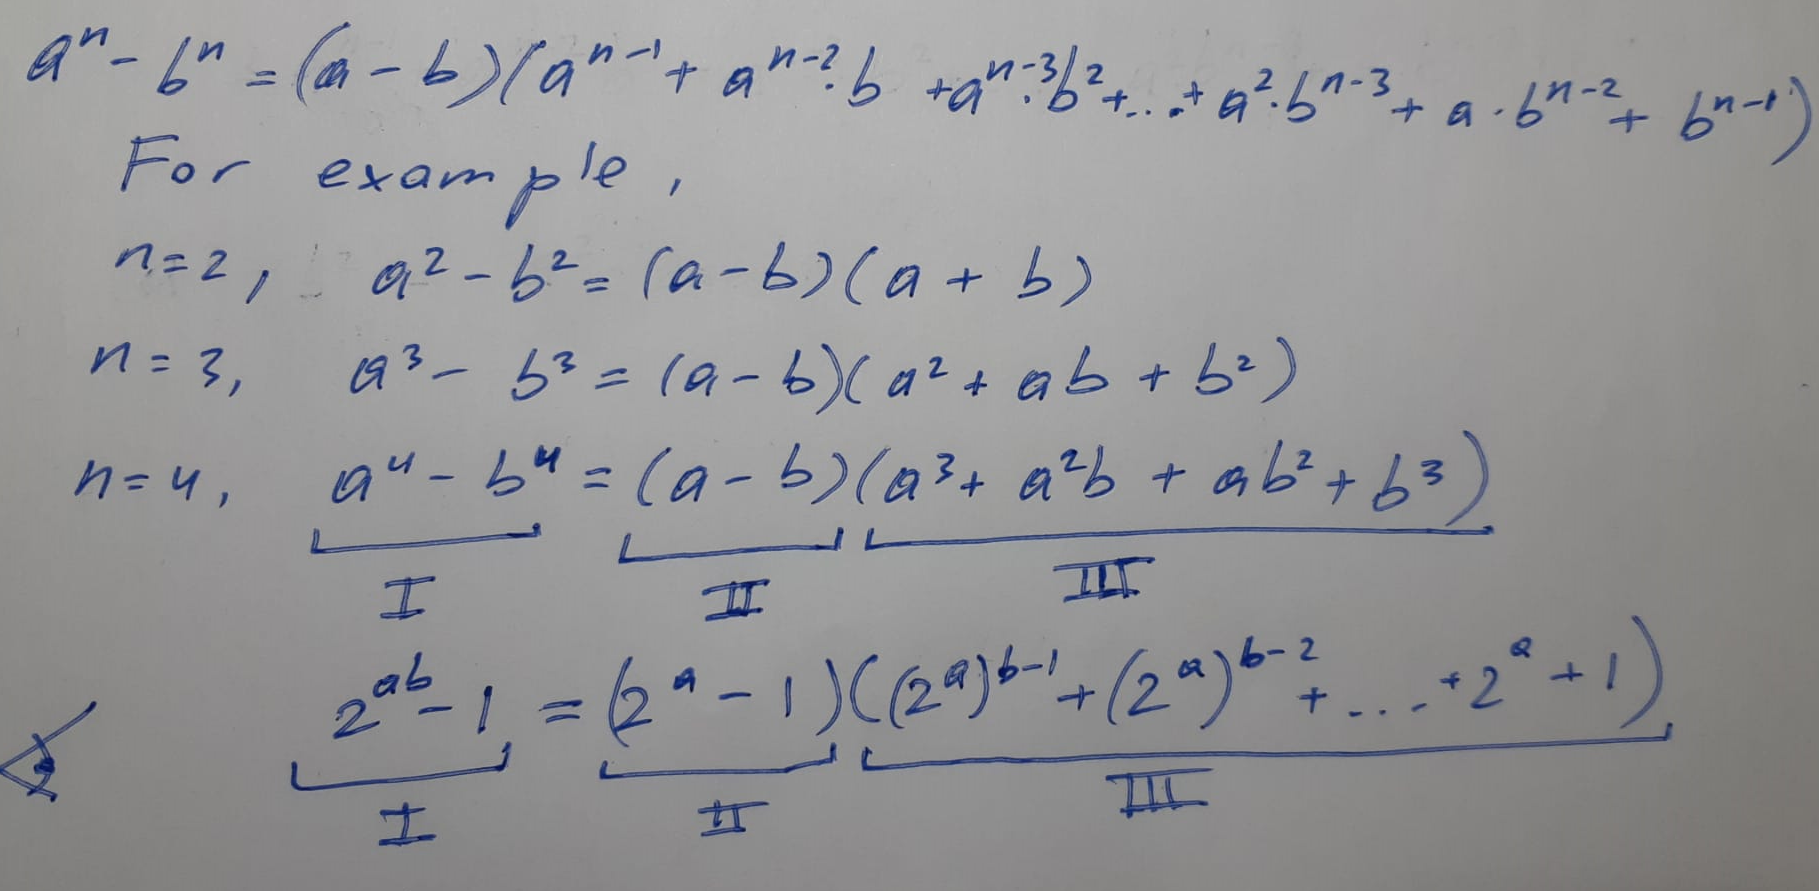 aⁿ - bⁿ = (a - b)(aⁿ⁻¹ + aⁿ⁻²·b + aⁿ⁻³·b² + ... + a²·bⁿ⁻³ + a·bⁿ⁻² + bⁿ⁻¹)
For example,
n=2, a² - b² = (a - b)(a + b)
n=3, a³ - b³ = (a - b)(a² + ab + b²)
n=4, a⁴ - b⁴ = (a - b)(a³ + a²b + ab² + b³)
I II III
2ᵃᵇ - 1 = (2ᵃ - 1)((2ᵃ)ᵇ⁻¹ + (2ᵃ)ᵇ⁻² + .... + 2ᵃ + 1)
I II III